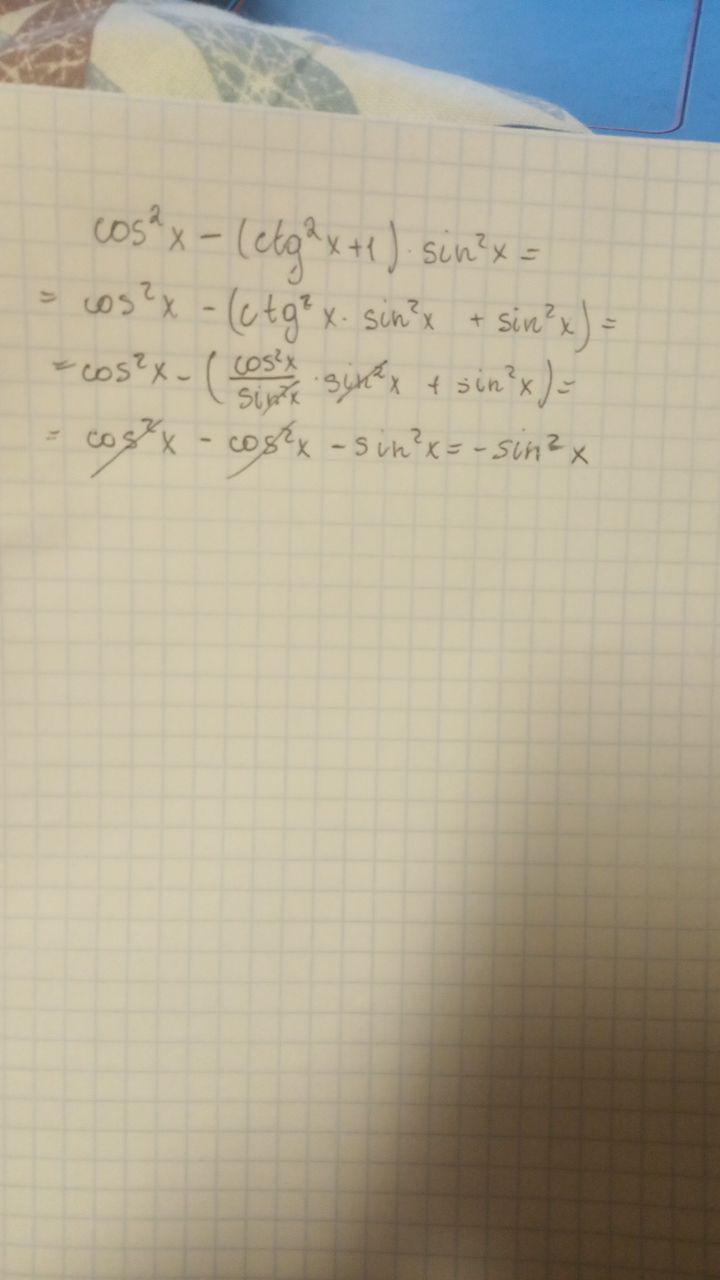 cos²x - (ctg²x+1) · sin²x =
= cos²x - (ctg²x · sin²x + sin²x) =
= cos²x - (cos²x/sin²x · sin²x + sin²x) =
= cos²x - cos²x - sin²x = - sin²x